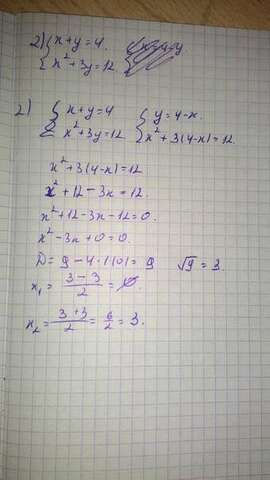 2) { x+y=4.
x²+3y=12.
2) { x+y=4 { y=4-x.
x²+3y=12 x²+3(4-x)=12.
x²+3(4-x)=12
x²+12-3x=12.
x²+12-3x-12=0.
x²-3x+0=0.
D=9-4·1·(0)=9 √9=3.
x₁=(3-3)/2=0.
x₂=(3+3)/2=6/2=3.